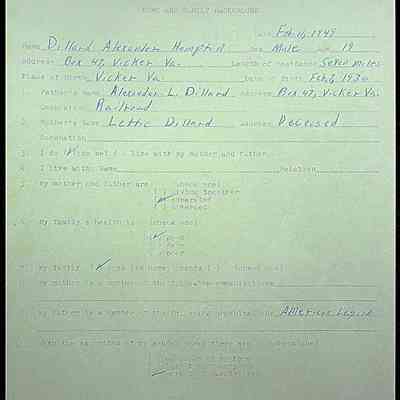 HOME AND FAMILY BACKGROUND
Date Feb 16, 1949
Name Dillard Alexander Hampton Sex Male Age 19
Address Box 47, Vicker Va. Length of residence Seven miles
Place of birth Vicker Va. Date of birth Feb 3, 1930
1. Father's name Alexander L. Dillard Address Box 47, Vicker Va.
Occupation Railroad
2. Mother's name Lettie Dillard Address Deceased
Occupation
3. I do (✓) do not ( ) live with my mother and father.
4. I live with: Name Relation
5. My mother and father are (check one)
( ) living together
separated
( ) divorced
6. My family's health is (check one)
(✓) good
( ) fair
( ) poor
7. My family (✓) owns its home; rents ( ) (check one)
8. My mother is a member of the following organizations
9. My father is a member of the following organizations American Legion